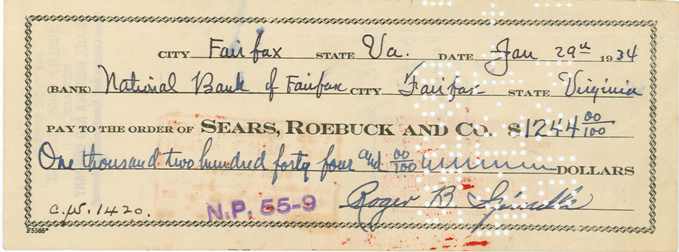 CITY Fairfax STATE Va. DATE Jan 29th 1934
(BANK) National Bank of Fairfax CITY Fairfax STATE Virginia
PAY TO THE ORDER OF SEARS, ROEBUCK AND CO. $1244 00/100
One thousand two hundred forty four and 00/100 DOLLARS
Roger B
C.W. 1420.
N.P. 55-9
F5386